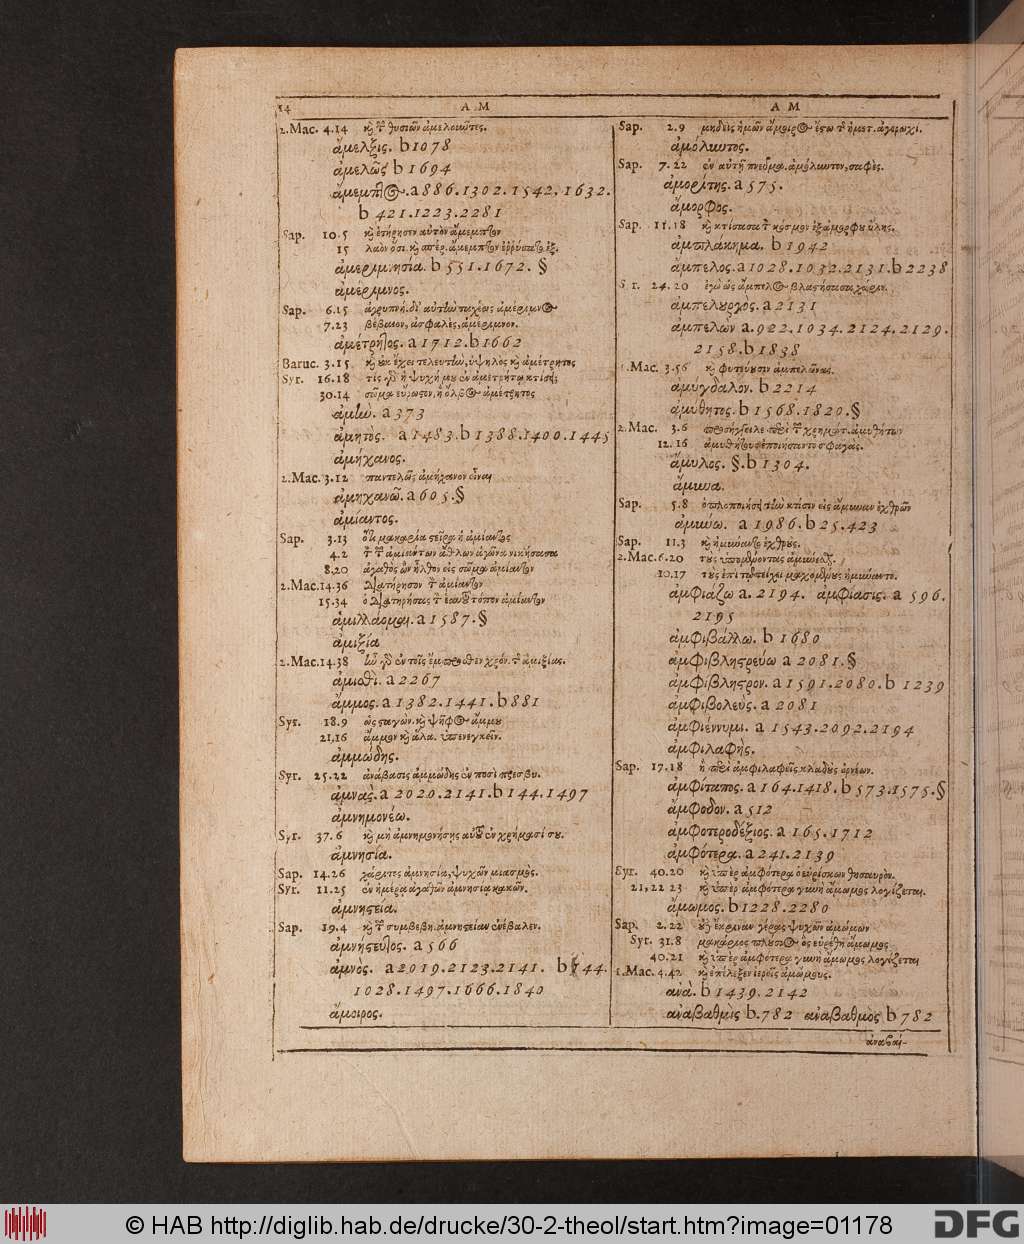 14 A M A M
2.Mac. 4.14 καὶ τῶν θυσιῶν ἀμελοῦντες.
ἄμελξις. b 1078
ἀμελῶς b 1694
ἄμεμπτος. a 886. 1302. 1542. 1632.
b 421. 1223. 2281
Sap. 10.5 καὶ ἐτήρησεν αὐτὸν ἄμεμπτον
15 λαὸν ὅσι. καὶ σπέρ. ἄμεμπτον ἐρρύσατο ἐξ.
ἀμεριμνησία. b 551. 1672. §
ἀμέριμνος.
Sap. 6.15 ἀγρυπνή. δι' αὐτὴν ταχέως ἀμέριμνος
7.23 βέβαιον, ἀσφαλὲς, ἀμέριμνον.
ἀμέτρητος. a 1712. b 1662
Baruc. 3.15 καὶ οὐκ ἔχει τελευτὴν, ὑψηλὸς καὶ ἀμέτρητος
Syr. 16.18 τίς γὰρ ἡ ψυχή μου ἐν ἀμετρήτῳ κτίσει;
30.14 ἀμέτρητος
ἀμὴν. a 373
ἀμητὸς. a 1483. b 1388. 1400. 1445
ἀμήχανος.
2.Mac. 3.12 παντελῶς ἀμήχανον εἶναι
ἀμηχανῶ. a 605. §
ἀμίαντος.
Sap. 3.13 ὅτι μακαρία στεῖρα ἡ ἀμίαντος
4.2 τὸν τῶν ἀμιάντων ἄθλων ἀγῶνα νικήσασα
8.20 ἀγαθὸς ὢν ἦλθον εἰς σῶμα ἀμίαντον
2.Mac. 14.36 διατήρησον τὸν ἀμίαντον
15.34 ὁ διατηρήσας τὸν ἑαυτοῦ τόπον ἀμίαντον
ἁμιλλάομαι. a 1587. §
ἀμιξία
2.Mac. 14.38 ἦν γὰρ ἐν τοῖς ἔμπροσθεν χρόν. τῆς ἀμιξίας.
ἀμισθὶ. a 2267
ἄμμος. a 1382. 1441. b 881
Syr. 18.9 ὡς σταγὼν. καὶ ψῆφος ἄμμου
21,16 ἄμμον καὶ ἅλα. ὑπενεγκεῖν.
ἀμμώδης.
Syr. 25.22 ἀνάβασις ἀμμώδης ἐν ποσὶ πρεσβυ.
ἀμνὰς. a 2020. 2141. b 144. 1497
ἀμνημονέω.
Syr. 37.6 καὶ μὴ ἀμνημονήσῃς αὐτοῦ ἐν χρήμασί σου.
ἀμνησία.
Sap. 14.26 χάριτος ἀμνησία, ψυχῶν μιασμὸς.
Syr. 11.25 ἐν ἡμέρᾳ ἀγαθῶν ἀμνησία κακῶν.
ἀμνηστεία.
Sap. 19.4 καὶ τῶν συμβεβη. ἀμνηστείαν ἐνέβαλεν.
ἀμνήστευτος. a 566
ἀμνὸς. a 2019. 2123. 2141. b 144.
1028. 1497. 1666. 1840
ἄμοιρος.
Sap. 2.9 μηδεὶς ἡμῶν ἄμοιρος ἔστω τῆς ἡμετ. ἀγερωχι.
ἀμόλυντος.
Sap. 7.22 ἐν αὐτῇ πνεῦμα. ἀμόλυντον, σαφὲς.
ἀμορίτης. a 575.
ἄμορφος.
Sap. 11.18 καὶ κτίσασα τὸν κόσμον ἐξ ἀμόρφου ὕλης.
ἀμπλάκημα. b 1942
ἄμπελος. a 1028. 1032. 2131. b 2238
Syr. 24.20 ἐγὼ ὡς ἄμπελος βλαστήσασα χάριν.
ἀμπελουργὸς. a 2131
ἀμπελὼν a. 922. 1034. 2124. 2129.
2158. b 1838
1.Mac. 3.56 καὶ φυτεύουσιν ἀμπελῶνας.
ἀμύγδαλον. b 2214
ἀμύθητος. b 1568. 1820. §
2.Mac. 3.6 προσήγγειλε περὶ τῶν χρημάτ. ἀμυθήτων
12.16 ἀμυθήτους ἐποιήσαντο σφαγάς.
ἄμυλος. §. b 1304.
ἄμυνα.
Sap. 5.8 ὁπλοποιήσῃ τὴν κτίσιν εἰς ἄμυναν ἐχθρῶν
ἀμύνω. a 1986. b 25. 423
Sap. 11.3 καὶ ἠμύναντο ἐχθροὺς.
2.Mac. 6.20
10.17 τοὺς ἐπὶ τῷ τείχει μαχομένους ἠμύναντο.
ἀμφιάζω a. 2194. ἀμφίασις. a 596.
2195
ἀμφιβάλλω. b 1680
ἀμφιβληστρεύω a 2081. §
ἀμφίβληστρον. a 1591. 2080. b 1239
ἀμφιβολεὺς. a 2081
ἀμφιέννυμι. a 1543. 2092. 2194
ἀμφιλαφὴς.
Sap. 17.18 ἢ περὶ ἀμφιλαφεῖς κλάδους ὀρνέων.
ἀμφίταπος. a 164. 1418. b 573. 1575. §
ἄμφοδον. a 512
ἀμφοτεροδέξιος. a 165. 1712
ἀμφότερα. a 241. 2139
Syr. 40.20 καὶ ὑπὲρ ἀμφότερα ὁ εὑρίσκων θησαυρὸν.
21, 22 23 καὶ ὑπὲρ ἀμφότερα γυνὴ ἄμωμος λογίζεται.
ἄμωμος. b 1228. 2280
Sap. 2.22 οὐδ' ἔκριναν γέρας ψυχῶν ἀμώμων
Syr. 31.8 μακάριος πλούσιος ὃς εὑρέθη ἄμωμος
40.21 καὶ ὑπὲρ ἀμφότερα γυνὴ ἄμωμος λογίζεται
1.Mac. 4.42 καὶ ἐπέλεξεν ἱερεῖς ἀμώμους.
ἀνὰ. b 1439. 2142
ἀναβαθμὶς b. 782 ἀναβαθμὸς b 782
ἀναβαί-
© HAB http://diglib.hab.de/drucke/30-2-theol/start.htm?image=01178
DFG